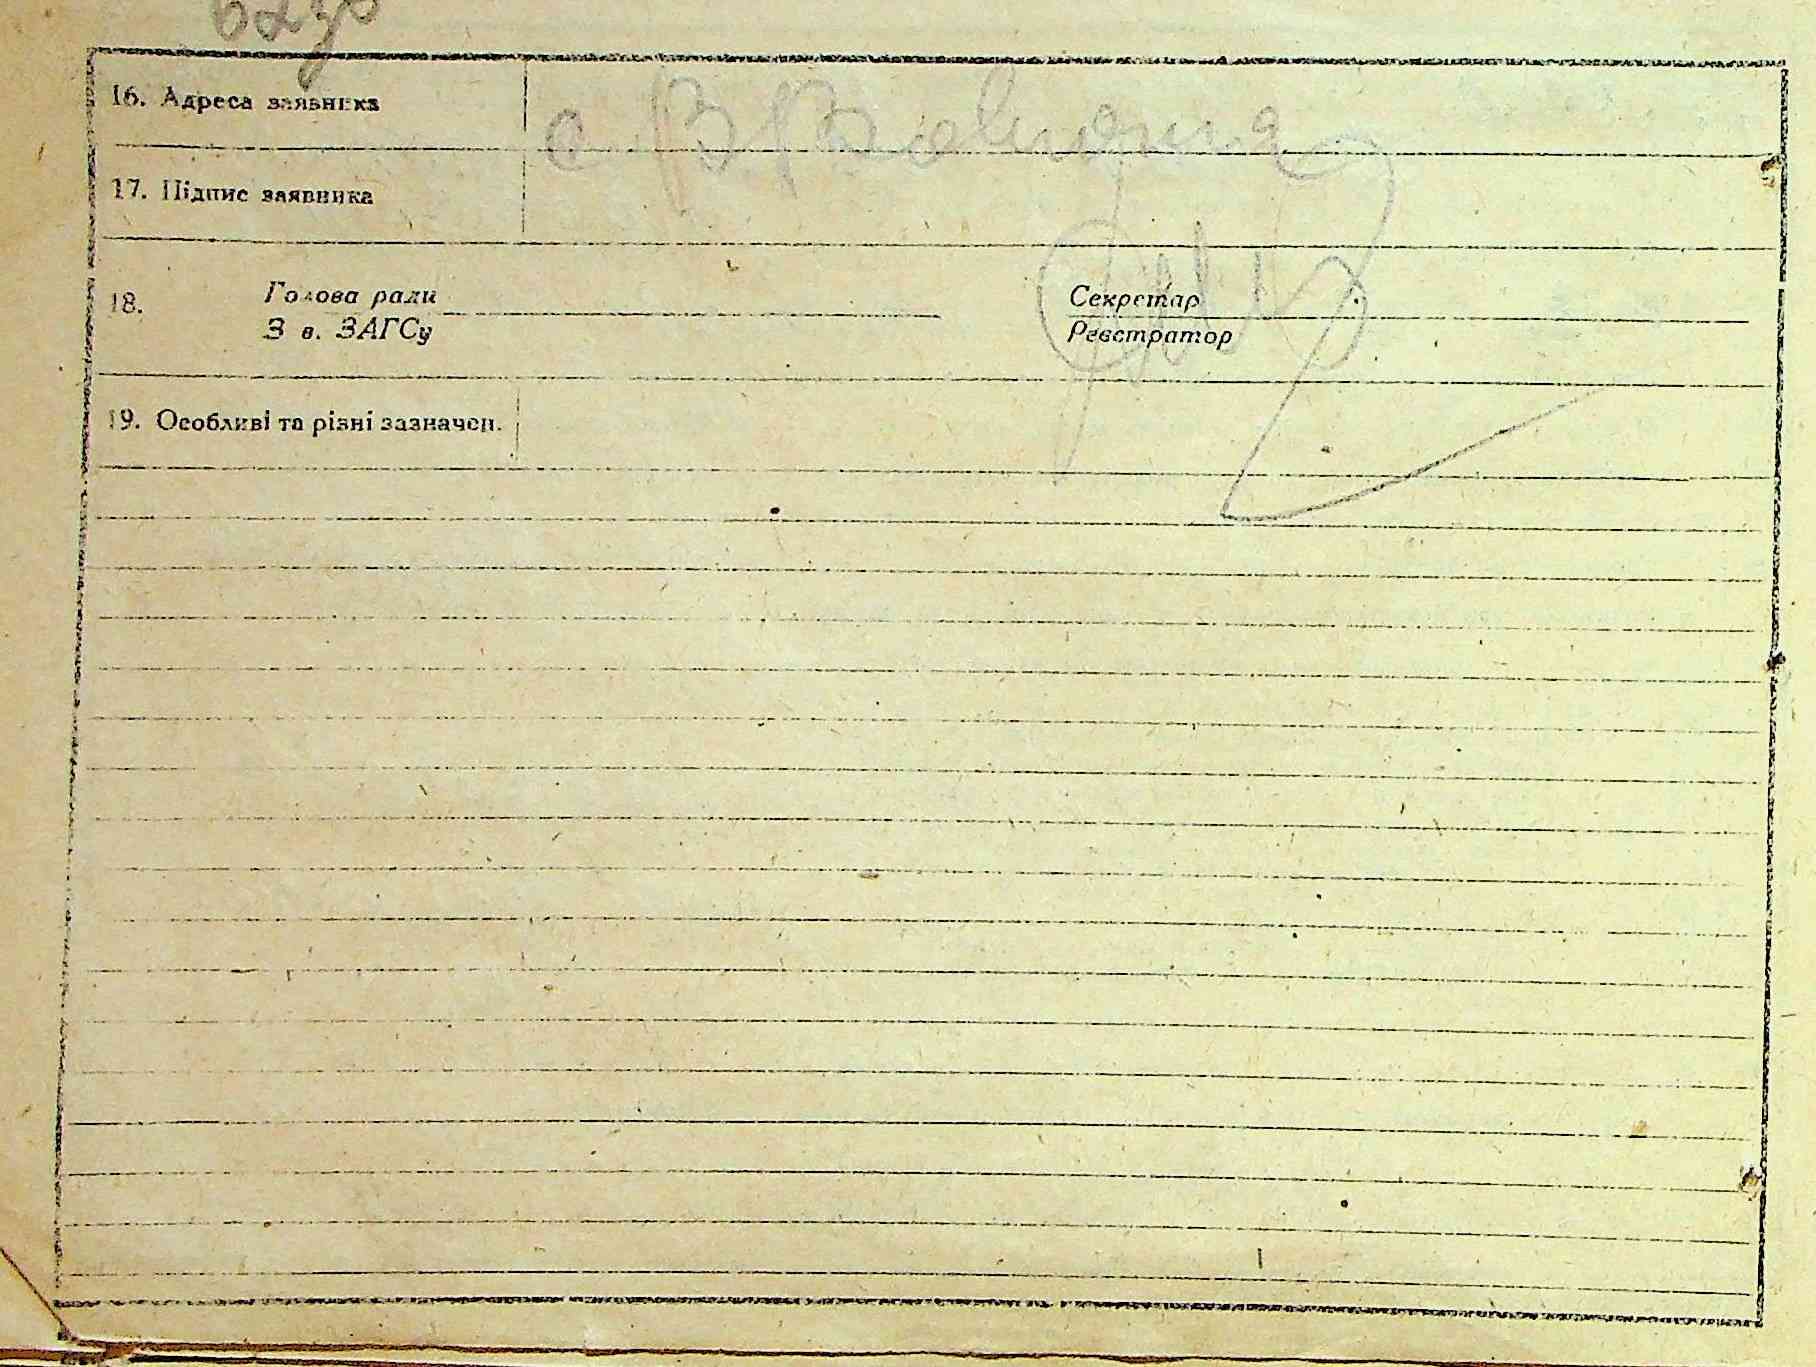 16. Адреса заявника
с. В
17. Підпис заявника
18.
Голова ради
Секретар
З в. ЗАГСу
Реєстратор
19. Особливі та різні зазначен.